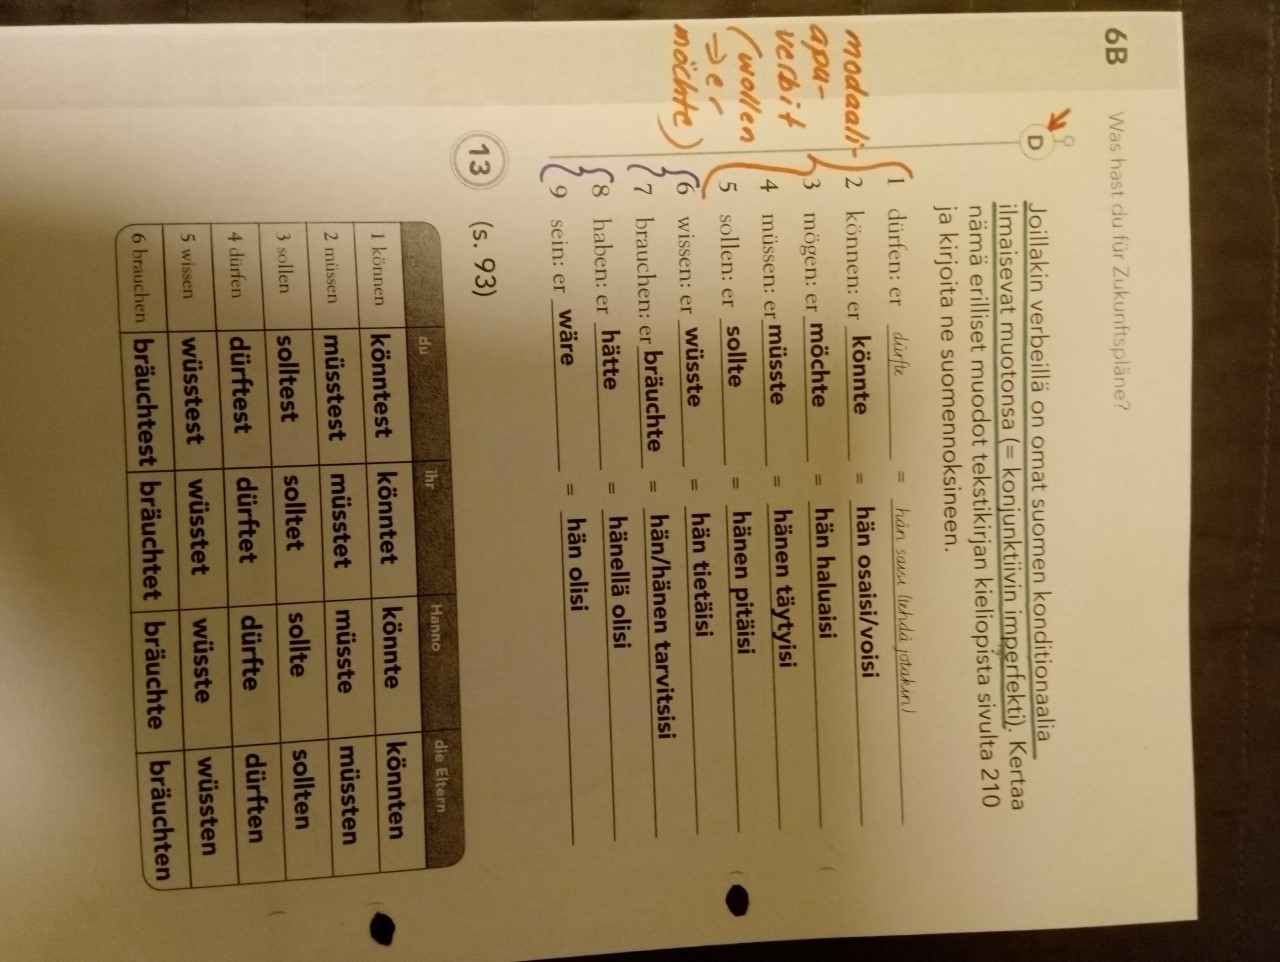 6B Was hast du für Zukunftspläne?
D
Joillakin verbeillä on omat suomen konditionaalia
ilmaisevat muotonsa (= konjunktiivin imperfekti). Kertaa
nämä erilliset muodot tekstikirjan kieliopista sivulta 210
ja kirjoita ne suomennoksineen.
modaali-
apu-
verbit
(wollen
=> er
möchte)
1 dürfen: er dürfte = hän saisi (tehdä jotakin)
2 können: er könnte = hän osaisi/voisi
3 mögen: er möchte = hän haluaisi
4 müssen: er müsste = hänen täytyisi
5 sollen: er sollte = hänen pitäisi
6 wissen: er wüsste = hän tietäisi
7 brauchen: er bräuchte = hän/hänen tarvitsisi
8 haben: er hätte = hänellä olisi
9 sein: er wäre = hän olisi
13 (s. 93)
du ihr Hanno die Eltern
1 können könntest könntet könnte könnten
2 müssen müsstest müsstet müsste müssten
3 sollen solltest solltet sollte sollten
4 dürfen dürftest dürftet dürfte dürften
5 wissen wüsstest wüsstet wüsste wüssten
6 brauchen bräuchtest bräuchtet bräuchte bräuchten